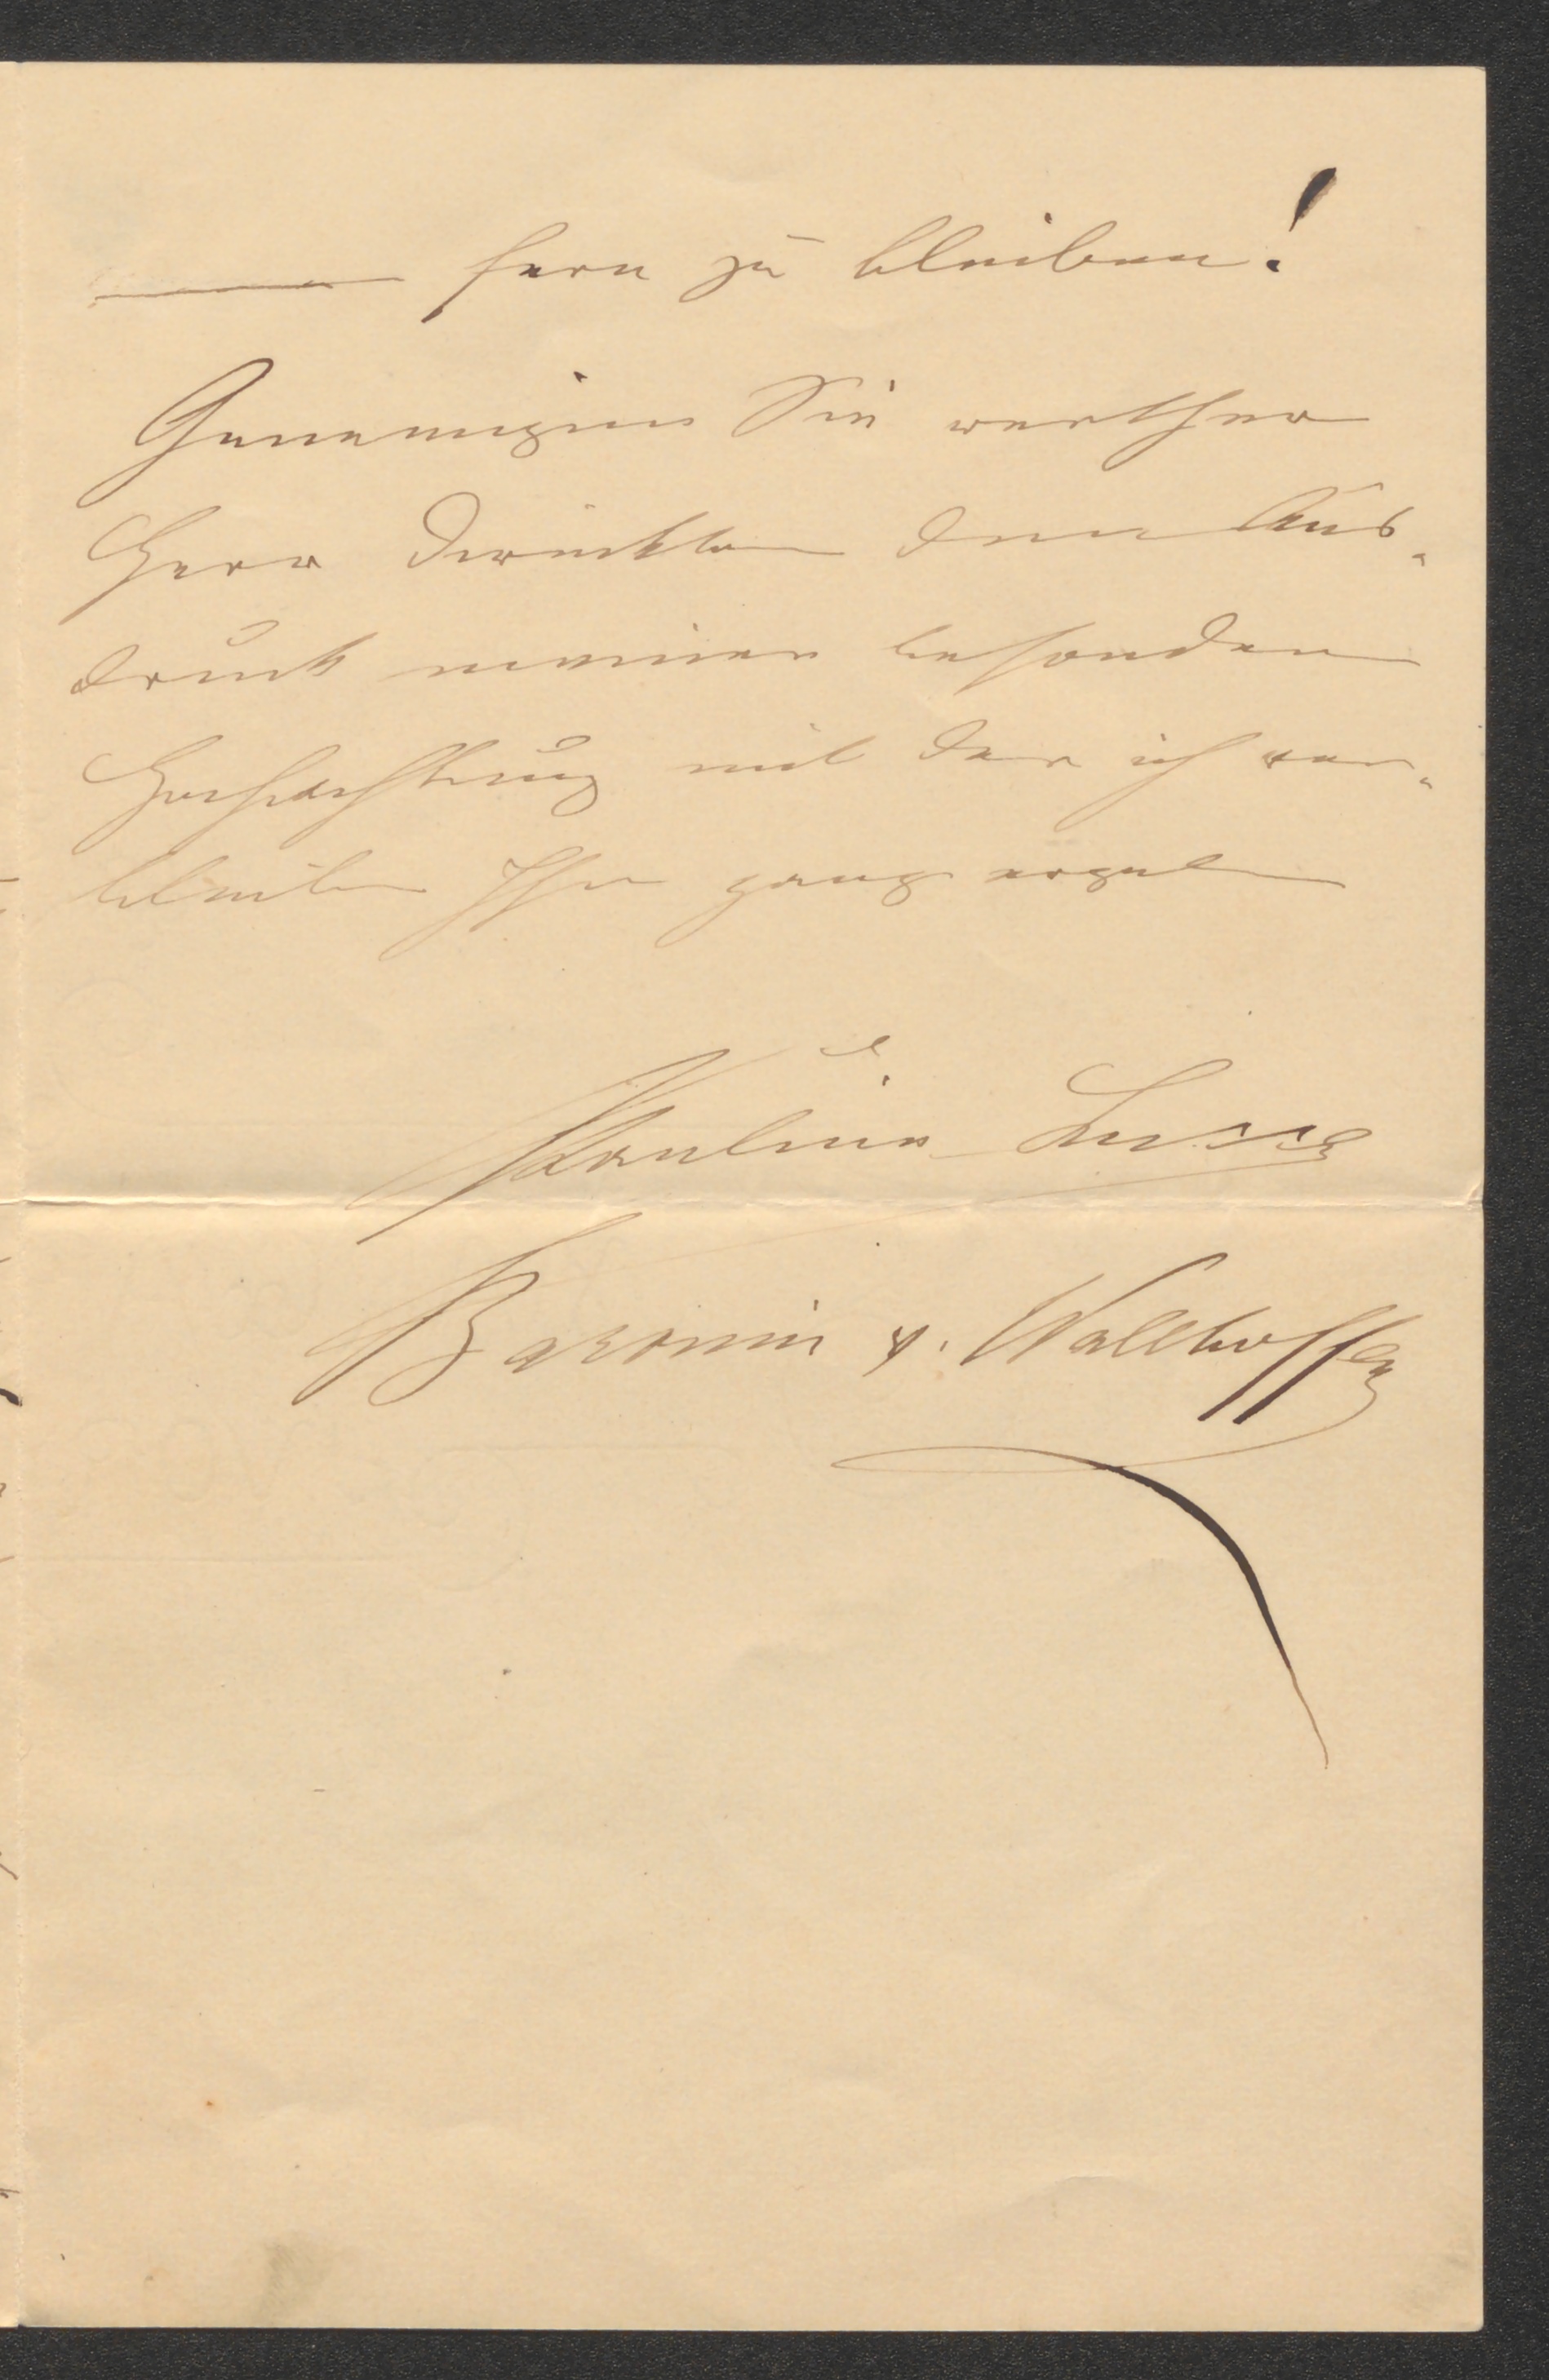 — fern zu bleiben!
Genemigen Sie werther
Herr Direcktor den Aus-
druck meiner besondern
Hochachtung mit der ich ver-
bleibe Ihre ganz ergeb
Pauline Lucca
Baronin v. Wallhoffen